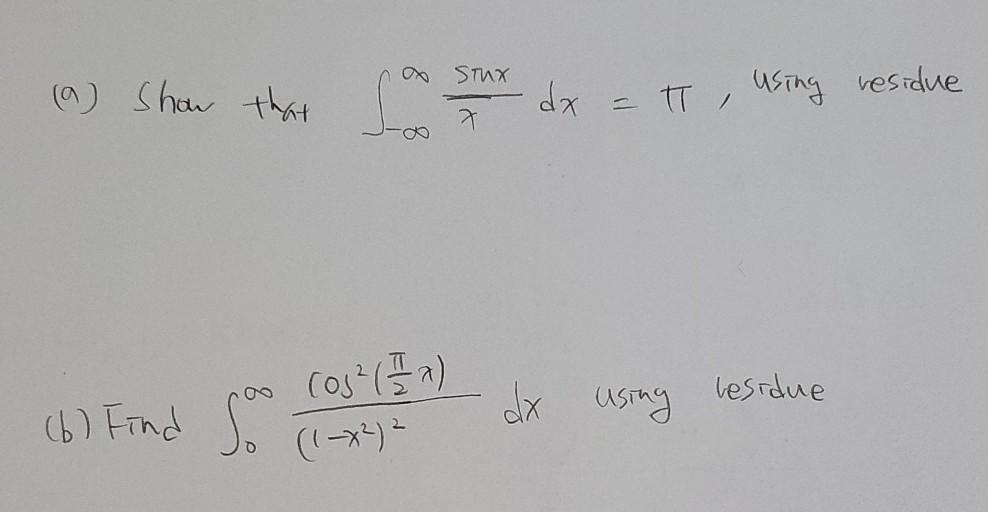 (a) Show that ∫_{-∞}^{∞} sinx/x dx = π, using residue
(b) Find ∫_0^∞ cos²(π/2 x)/(1-x²)² dx using residue